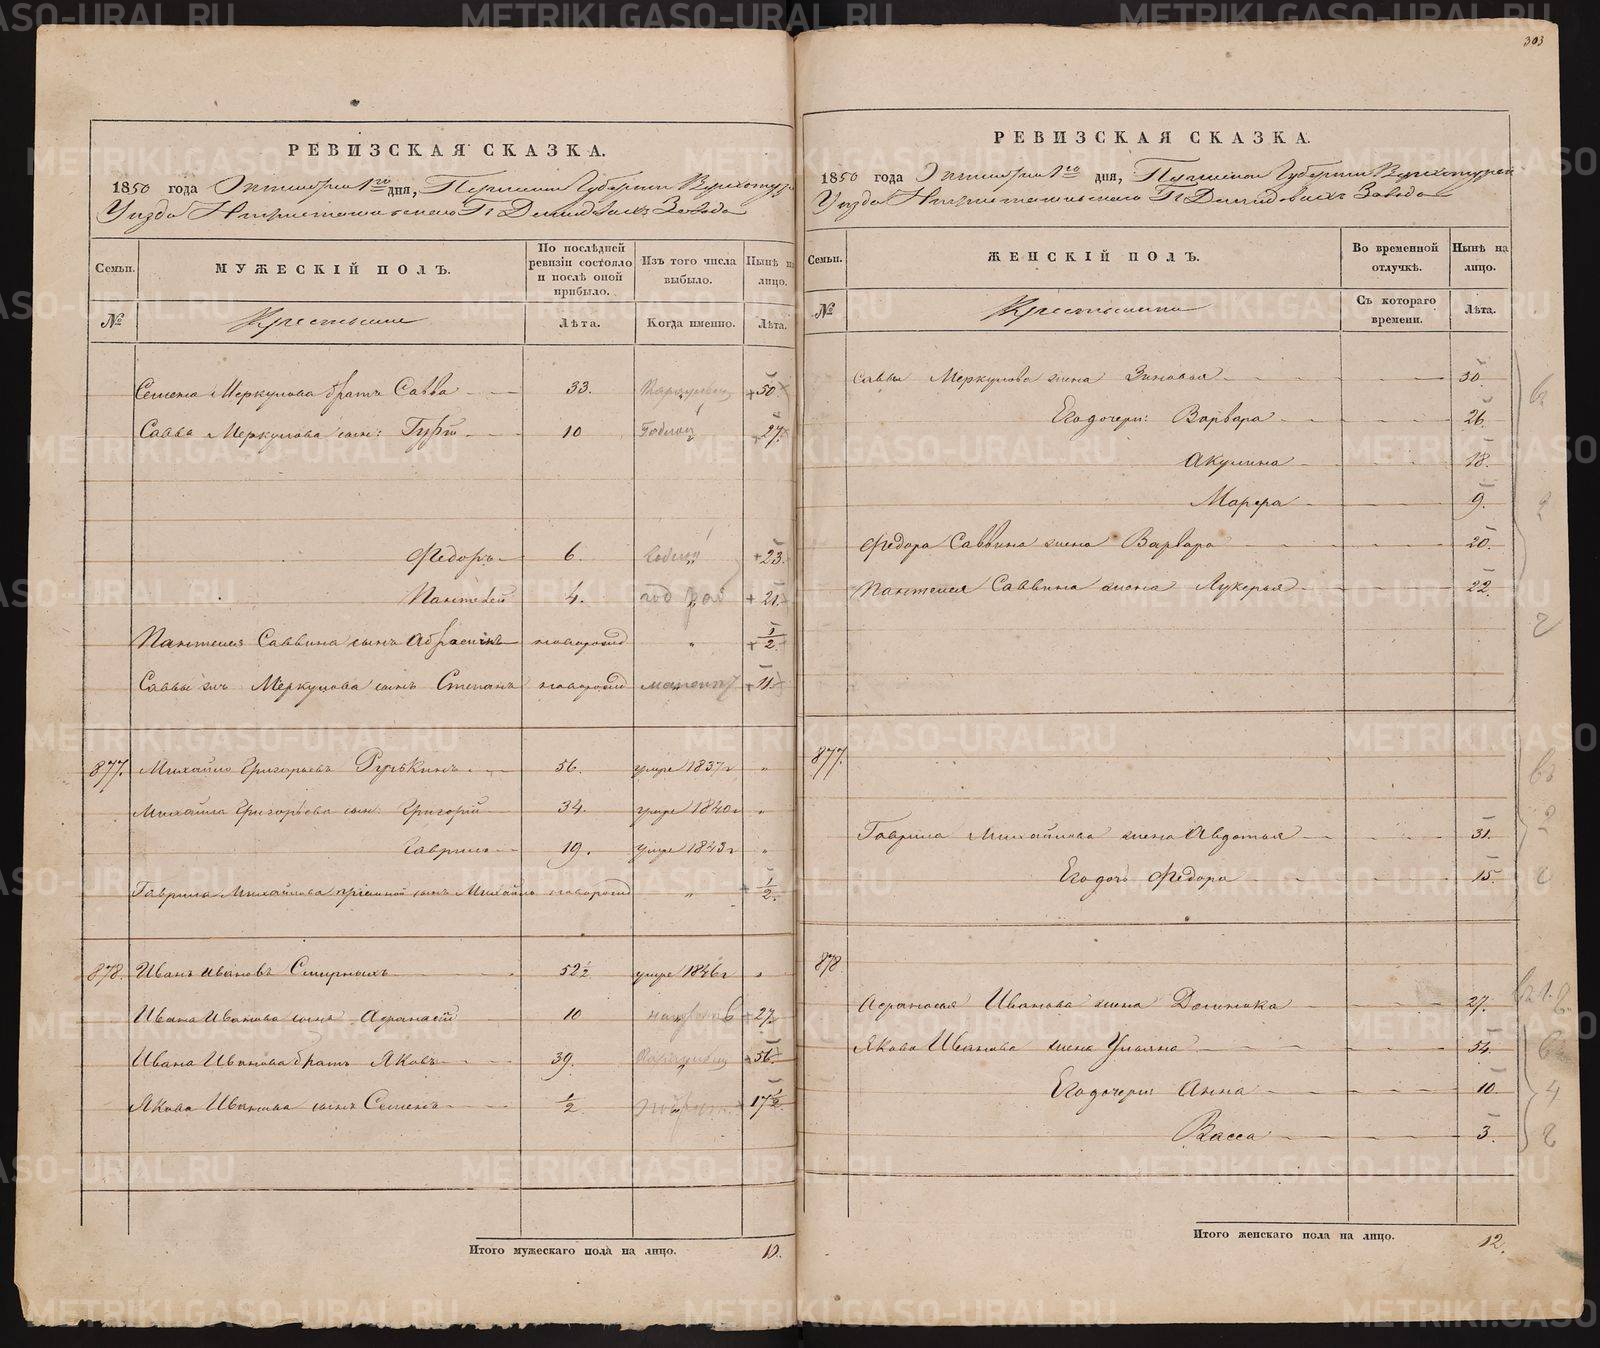 303
РЕВИЗСКАЯ СКАЗКА.
1850 года Октября 1го дня, Пермской Губернии Верхотур
Уезда Нижнетагильского Гг Демидовыхъ Завода
Семьи.
№
МУЖЕСКІЙ ПОЛЪ.
Крестьяне
По послѣдней ревизіи состояло и послѣ оной прибыло.
Лѣта.
Изъ того числа выбыло.
Когда именно.
Нынѣ на лицо.
Лѣта.
Семена Меркулова братъ Савва 33. 50
Саввы Меркулова сын: Гурій 10 Годной 27.
Федоръ 6. Годной 23.
Пантелей 4. 21
Пантелея Саввина сынъ Абрамъ новорожд " 1/2
Саввы Меркулова сынъ Степанъ новорожд 11.
877. Михайло Григорьевъ Рунькинъ 56. умре 1837 г "
Михайла Григорьева сын: Григорій 34. умре 1840 г "
Гаврило 19. умре 1843 г "
Гаврила Михайлова пріемной сынъ Михайло новорожд " 1/2.
878. Иванъ Ивановъ Смирныхъ 52 1/2 умре 1846 г "
Ивана Иванова сынъ Афанасій 10 27
Ивана Иванова братъ Яковъ 39. 56
Якова Иванова сынъ Семенъ 1/2 17 1/2
Итого мужескаго пола на лицо. 10.
РЕВИЗСКАЯ СКАЗКА.
1850 года Октября 1го дня, Пермской Губернии Верхотурскаго
Уезда Нижнетагильского Гг Демидовыхъ Завода
Семьи.
№
ЖЕНСКІЙ ПОЛЪ.
Крестьянки
Во временной отлучкѣ.
Съ котораго времени.
Нынѣ на лицо.
Лѣта.
Саввы Меркулова жена Зиновья 50.
Его дочери: Варвара 26.
Акулина 18.
Марфа 9.
Федора Саввина жена Варвара 20.
Пантелея Саввина жена Лукерья 22.
877.
Гаврила Михайлова жена Авдотья 31.
Его дочь Федора 15.
878.
Афанасья Иванова жена Домника 27.
Якова Иванова жена Ульяна 54.
Его дочери: Анна 10.
Васса 3.
Итого женскаго пола на лицо. 12.
METRIKI.GASO-URAL.RU